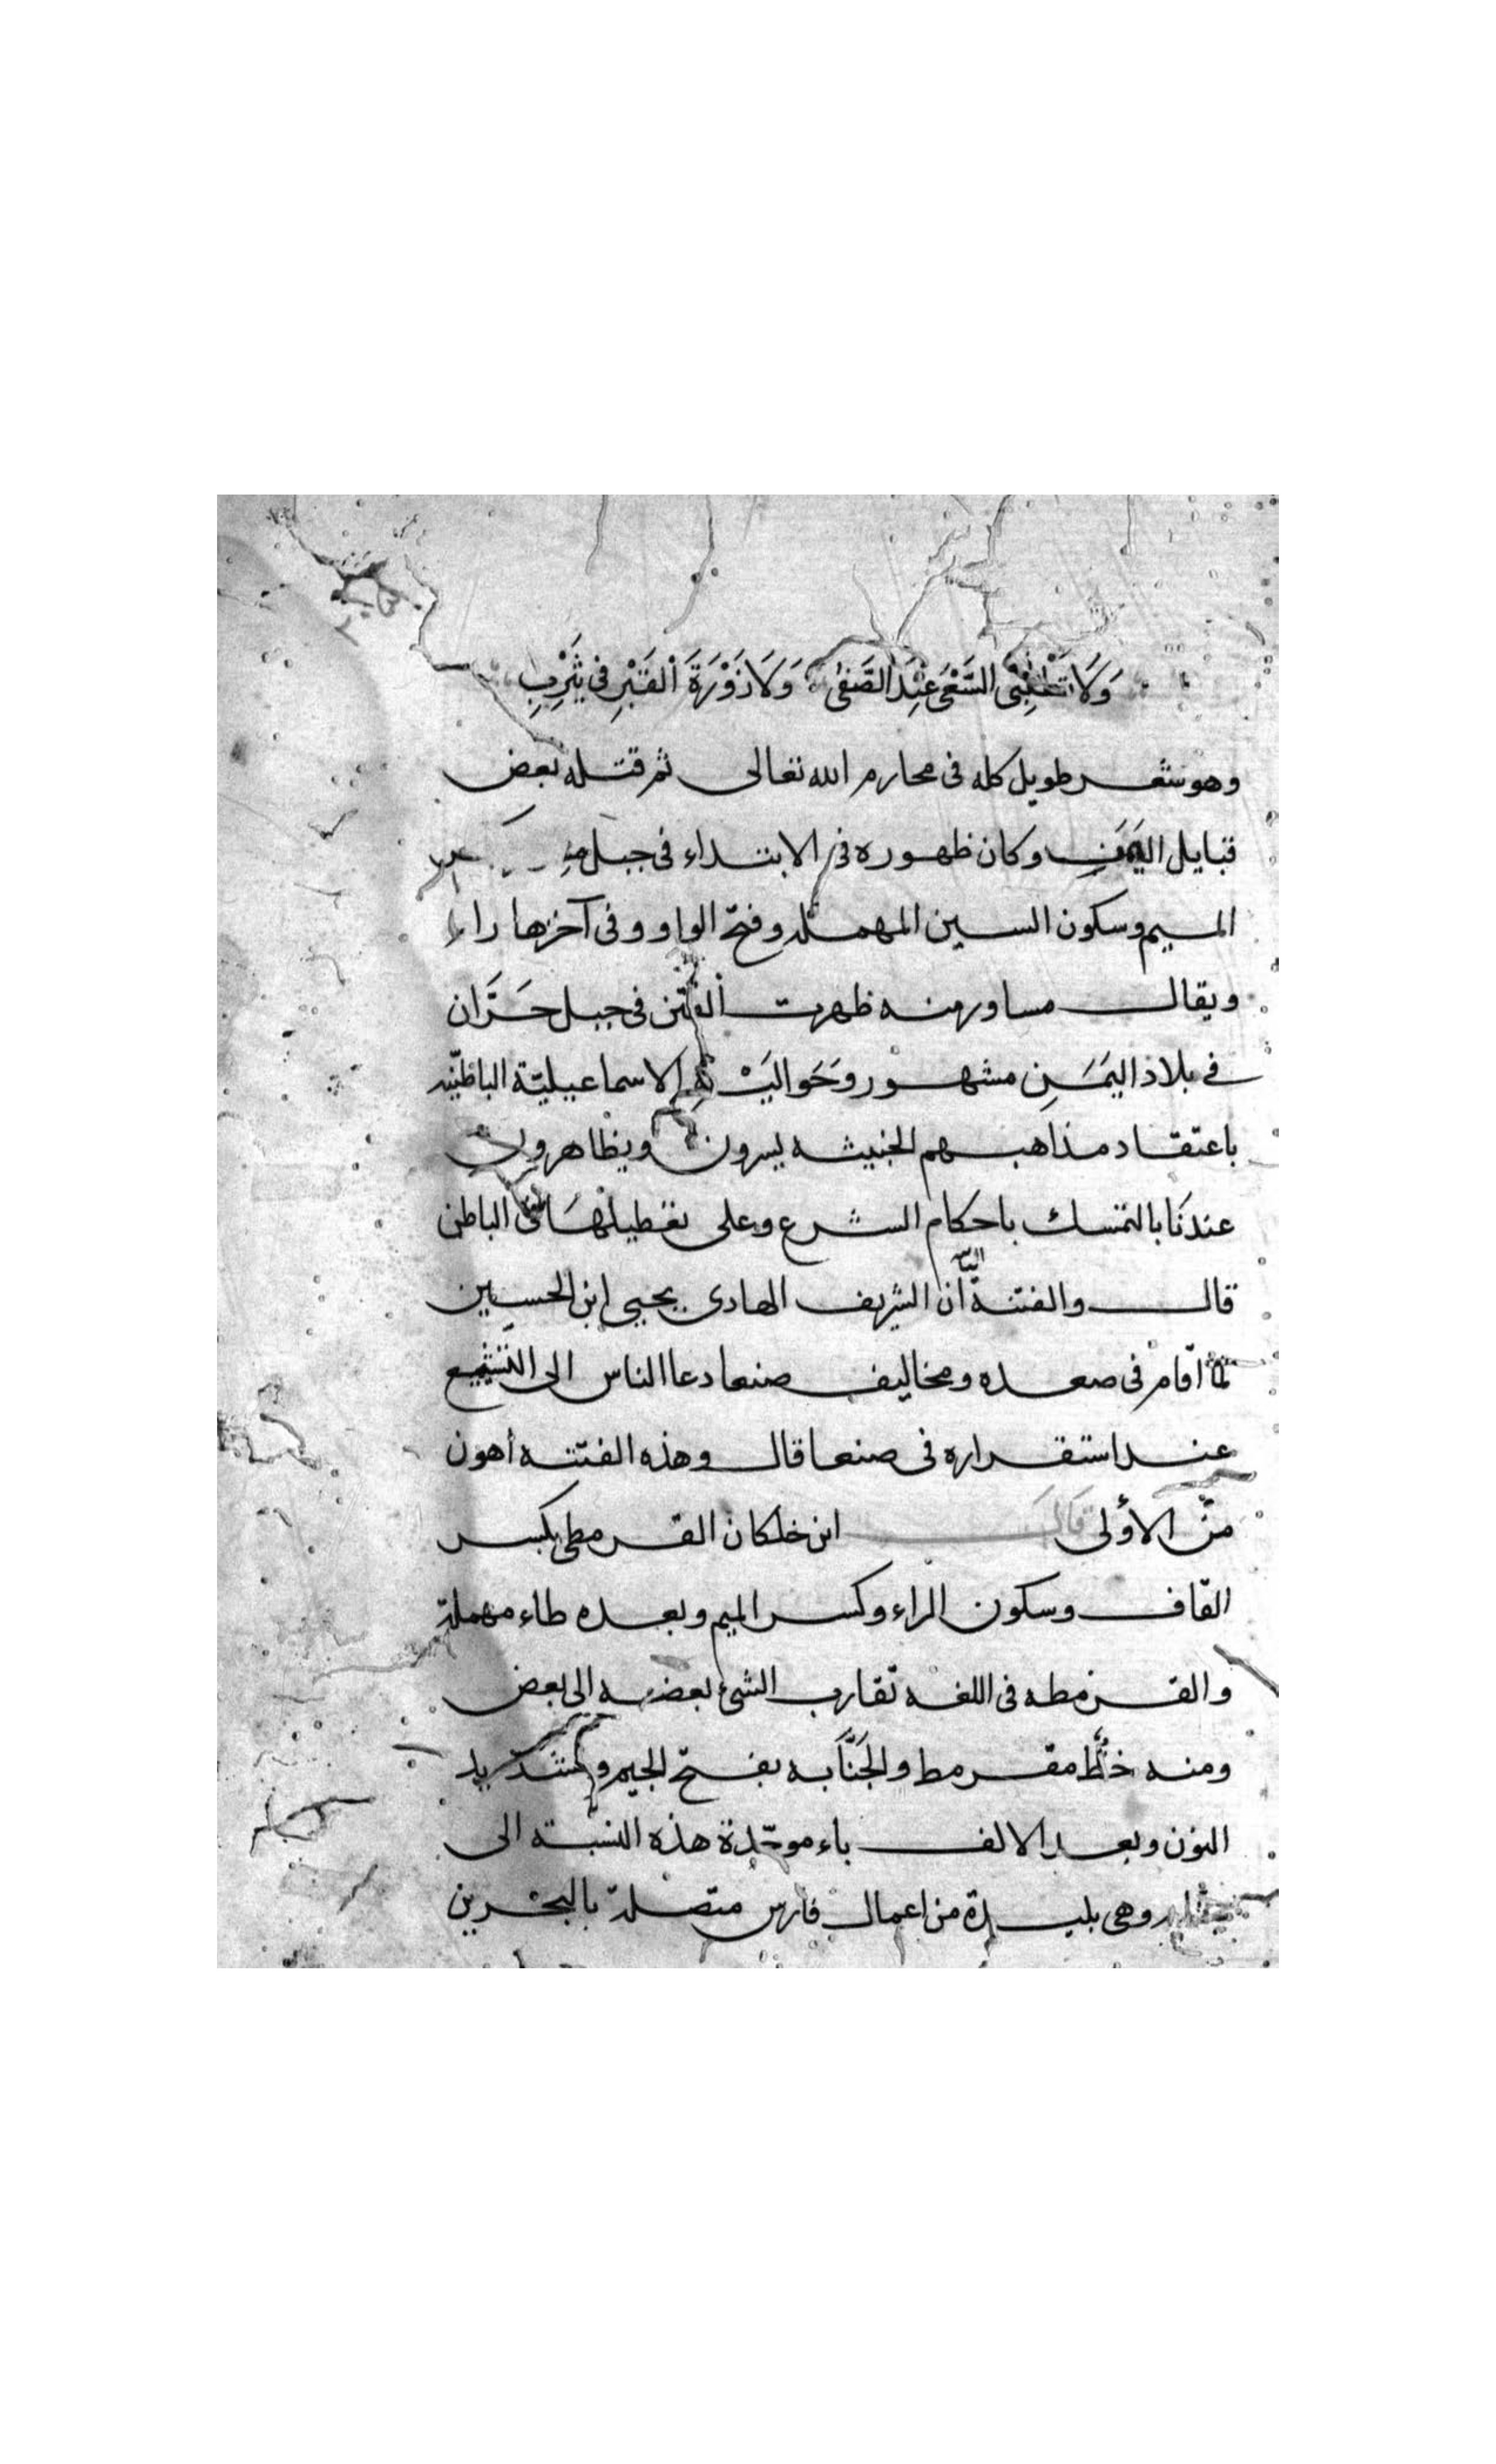 وَلَا تَطْلُبِى السَّعْىَ عِنْدَ الصَّفٰى وَلَا زَوْرَةَ القَبْرِ فى يَثْرِبِ
وهو شعر طويل كله فى محارم الله تعالى ثم قتله بعض
قبايل اليَمَنِ وكان ظهوره فى الابتداء فى جبل
الميم وسكون السين المهملة وفتح الواو وفى آخرها راء
ويقال مساور منه ظهرت الفتن فى جبل حَرَّان
فى بلاد اليَمَنِ مشهور وحَوَاليَْه الاسماعيليّة الباطنيّه
باعتقاد مذاهبهم الخبيثه يسرون ويظاهرون
عندنَا بالتمسك باحكام الشرع وعلى تعطيلهَا فى الباطن
قال والفتنة الثانيه أن الشريف الهادى يحيى ابن الحسين
لمّا اقام فى صعده ومخاليف صنعا دعا الناس الى التشيّع
عند استقراره فى صنعا قال وهذه الفتنه أهون
منَ الأولى قَالَ ابن خلكان القرمطى بكسر
القاف وسكون الراء وكسر الميم وبعده طاء مهملة
والقرمطه فى اللغه تقارب الشئ بعضه الى بعض
ومنه خطٌّ مقرمط والجَنَّابه بفتح الجيم وتشديد
النون وبعد الالف باء موحّدة هذه النسبته الى
وهى بليدة من اعمال فارس متصلة بالبحرين